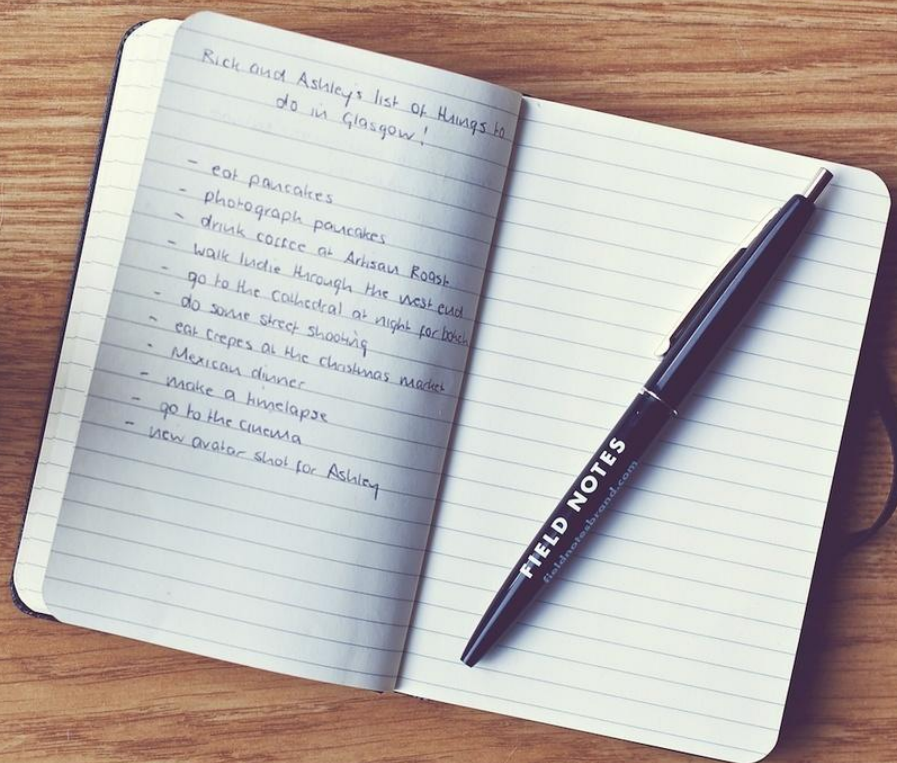 Rick and Ashley's list of things to
do in Glasgow!
- eat pancakes
- photograph pancakes
- drink coffee at Artisan Roast
- walk Indie through the west end
- go to the cathedral at night for bokeh
- do some street shooting
- eat crepes at the christmas market
- Mexican dinner
- make a timelapse
- go to the cinema
- new avatar shot for Ashley
FIELD NOTES
fieldnotesbrand.com